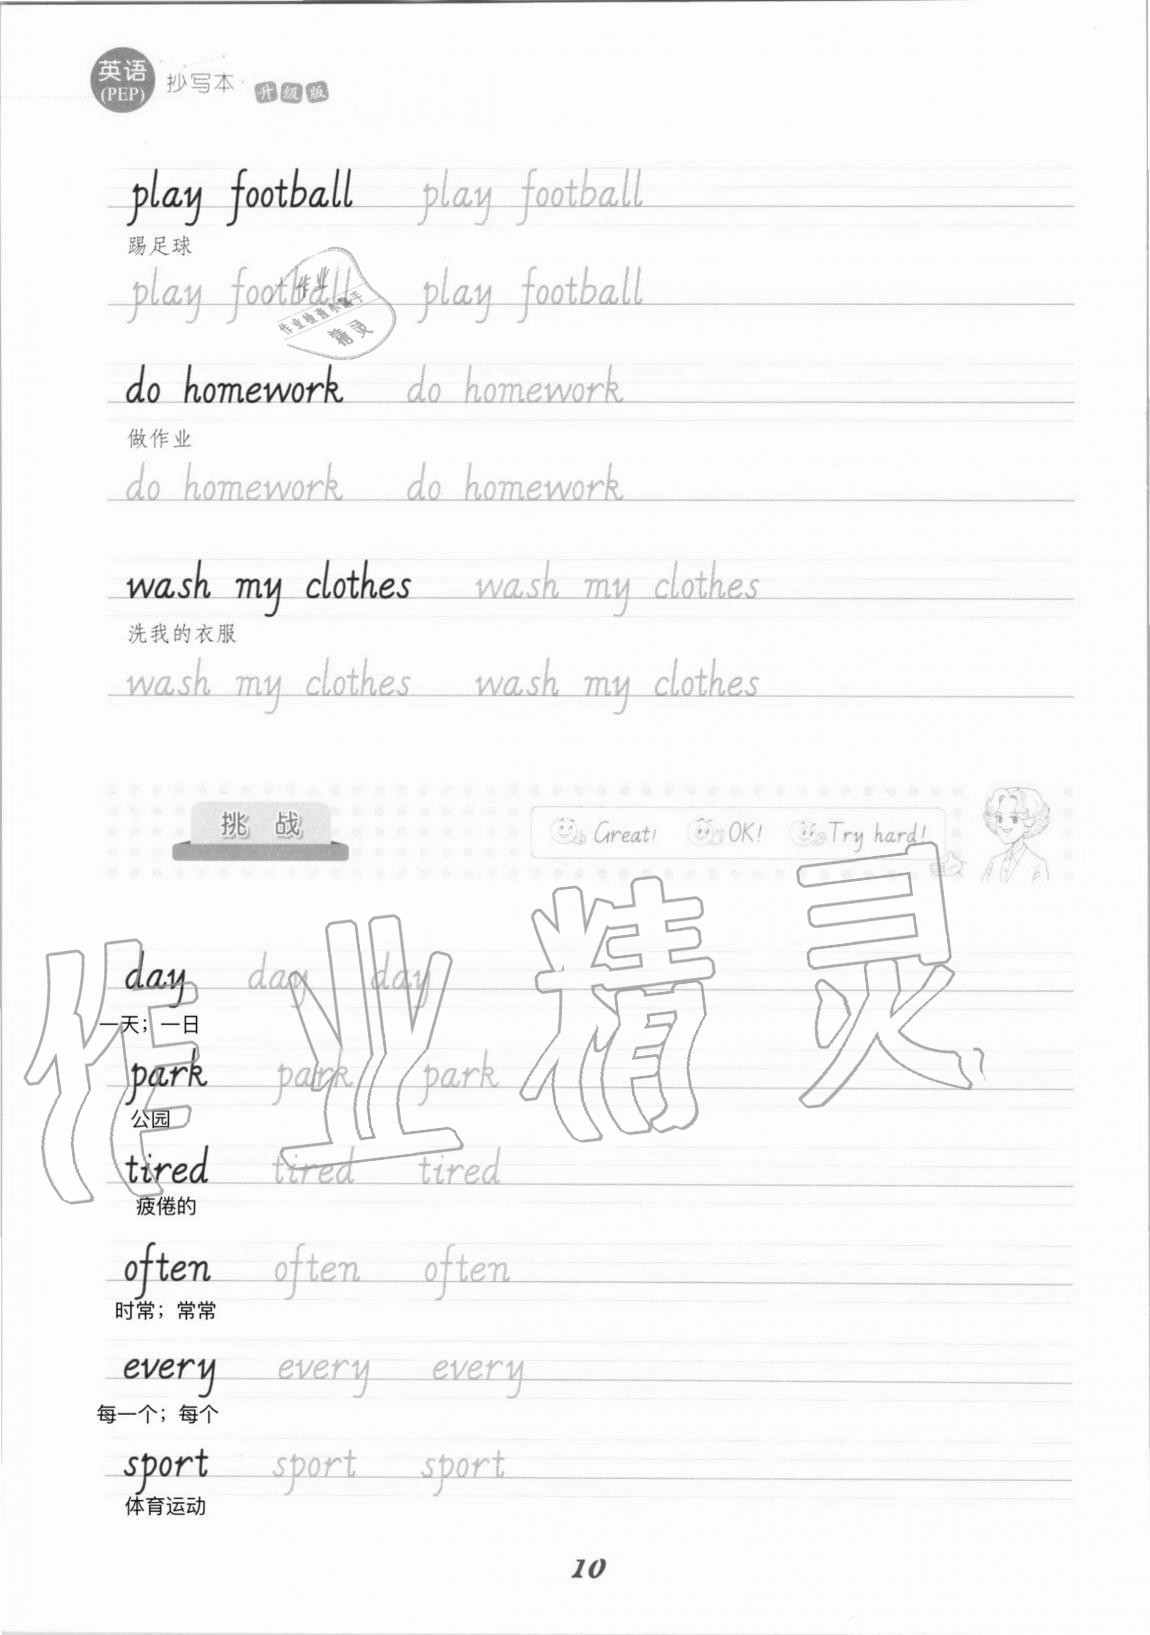 英语
(PEP)
抄写本
升级版
play football play football
踢足球
play football play football
作业
作业检查小帮手
精灵
do homework do homework
做作业
do homework do homework
wash my clothes wash my clothes
洗我的衣服
wash my clothes wash my clothes
挑 战
Great! OK! Try hard!
作业精灵
day day day
一天；一日
park park park
公园
tired tired tired
疲倦的
often often often
时常；常常
every every every
每一个；每个
sport sport sport
体育运动
10